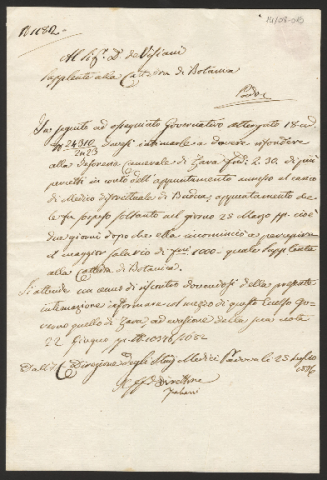 N 1182
Al Sig.r D. de Visiani
Supplente alla Cattedra di Botanica
Padova
In seguito ad ossequiato Governativo attergato 18 cd.
N. 24310/2023 devesi intimarle a dover rifondere
alla Cassa camerale di Zara fni 2.30. di più
percetti in conto dell'appuntamento annesso al carico
di Medico distrettuale di Budua, appuntamento che
le fu sospeso soltanto nel giorno 28 Marzo pp. cioè
due giorni dopo che ella incominciò a percepire
il maggior salario di fni 1000. quale Supplente
alla Cattedra di Botanica.
Si attende un cenno di riscontro dovendosi della presente
intimazione informare col mezzo di questo Eccelso Go-
verno quello di Zara, ad evasione della sua nota
22 Giugno pp.
Dall' Direzione degli Studj Medici Padova li 25 Luglio
1836
Il Direttore